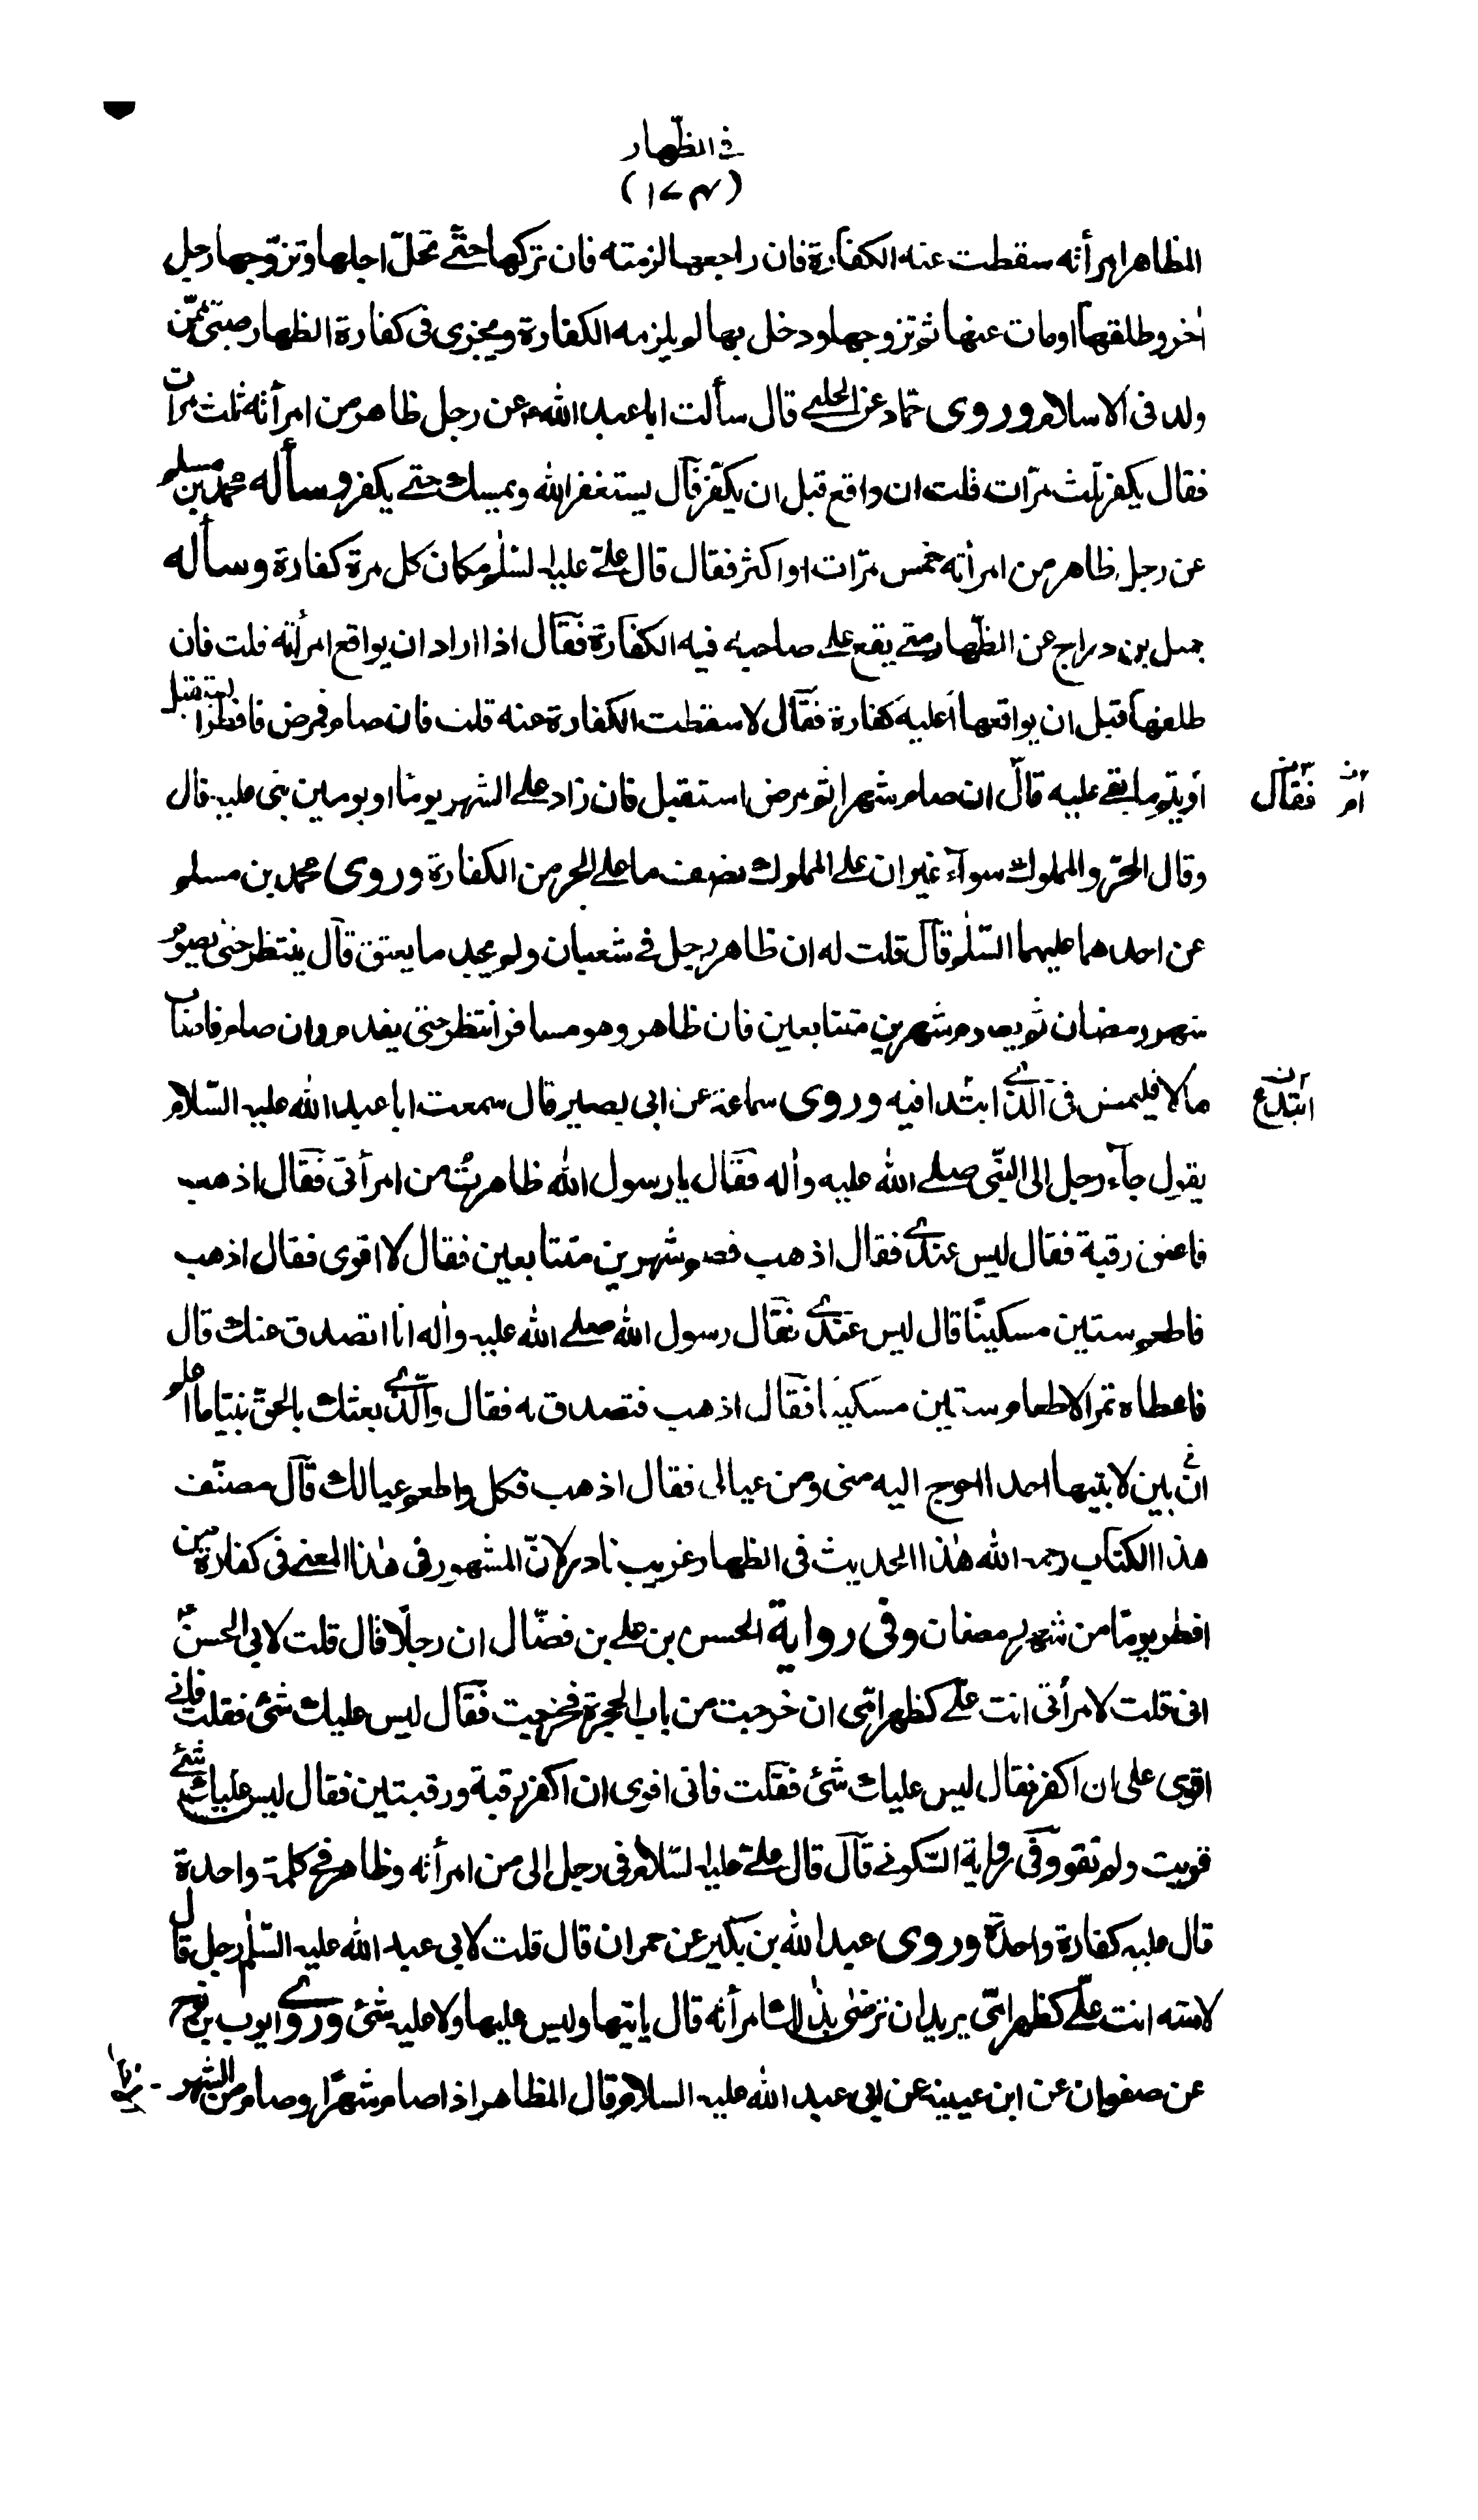 في الظّهار
(١٧٤)
المظاهر امرأته سقطت عنه الكفارة فان راجعها لزمته فان تركها حتّى تحلّ اجلها وتزوّجها رجل
اٰخر وطلقها اومات عنها ثم تزوجها ودخل بها لم يلزمه الكفارة ويجزى فى كفارة الظهار صبىّ ممّن
ولد فى الاسلام وروى حمّاد عن الحلبي قال سألت ابا عبد الله عن رجل ظاهر من امرأته ثلث مرّات
فقال يكفر ثلث مرّات قلت ان واقع قبل ان يكفّر قال يستغفر الله ويمسك حتى يكفر وسأله محمد بن مسلم
عن رجل ظاهر من امرأته خمس مرّات او اكثر فقال قال علىّ عليه السّلٰم مكان كل مرة كفارة وسأله
جميل بن دراج عن الظّهار متى يقع على صاحبه فيه الكفارة فقال اذا اراد ان يواقع امرأته قلت فان
طلقها قبل ان يواقعها أعليه كفارة فقال لا سقطت الكفارة عنه قلت فان صام فمرض فافطر أيستقبل
أو يتم ما بقي عليه قال ان صام شهرا ثم مرض استقبل فان زاد على الشهر يومًا او يومين بنى عليه قال
ام فقال
وقال الحرّ والمملوك سوآء غير ان على المملوك نصف ما على الحر من الكفارة وروى محمد بن مسلم
عن احدهما عليهما السّلٰم قال قلت له ان ظاهر رجل في شعبان ولم يجد ما يعتق قال ينتظر حتى يصوم
شهر رمضان ثم يصوم شهرين متتابعين فان ظاهر وهو مسافر انتظر حتى يقدم وان صام فاصاب
مالا فليمض فى الّذى ابتدا فيه وروى سماعة عن ابى بصير قال سمعت ابا عبد الله عليه السّلام
ابتدأ
يقول جآء رجل الى النبّى صلى الله عليه واٰله فقال يا رسول الله ظاهرتُ من امرأتى فقال اذهب
فاعتق رقبة فقال ليس عندى فقال اذهب فصم شهرين متتابعين فقال لا اقوى فقال اذهب
فاطعم ستين مسكينًا قال ليس عندى فقال رسول الله صلى الله عليه واٰله انا اتصدق عنك قال
فاعطاه تمرا لاطعام ستين مسكينا فقال اذهب فتصدق به فقال والّذى بعثك بالحقّ نبيّا ما اعلم
انّ بين لابتيها احدا احوج اليه منى ومن عيالى فقال اذهب فكل واطعم عيالك قال مصنّف
هذا الكتاب رحمه الله هٰذا الحديث فى الظهار غريب نادر لانّ المشهور فى هٰذا المعنى فى كفارة من
افطر يومًا من شهر رمضان وفى رواية الحسن بن على بن فضّال ان رجلًا قال قلت لابى الحسن
انى قلت لامرأتى انت علىّ كظهر امّى ان خرجت من باب الحجرة فخرجت فقال ليس عليك شئ فقلت فانى
اقوى على ان اكفر فقال ليس عليك شئ فقلت فانى اقوى ان اكفر رقبة ورقبتين فقال ليس عليك شئ
قويت ولم تقو وفى رواية السّكونى قال قال علىّ عليه السّلام فى رجل الى من امرأته وظاهر فى كلمة واحدة
قال عليه كفارة واحدة وروى عبد الله بن بكير عن حمران قال قلت لابى عبد الله عليه السّلٰم رجل قال
لامته انت علىّ كظهر امّى يريد ان ترضى بذٰلك امرأته قال ياتيها وليس عليها ولا عليه شئ وروى ايوب بن نوح
عن صفوان عن ابن عيينة عن ابى عبد الله عليه السلام قال المظاهر اذا صام شهرًا وصام من الشهر